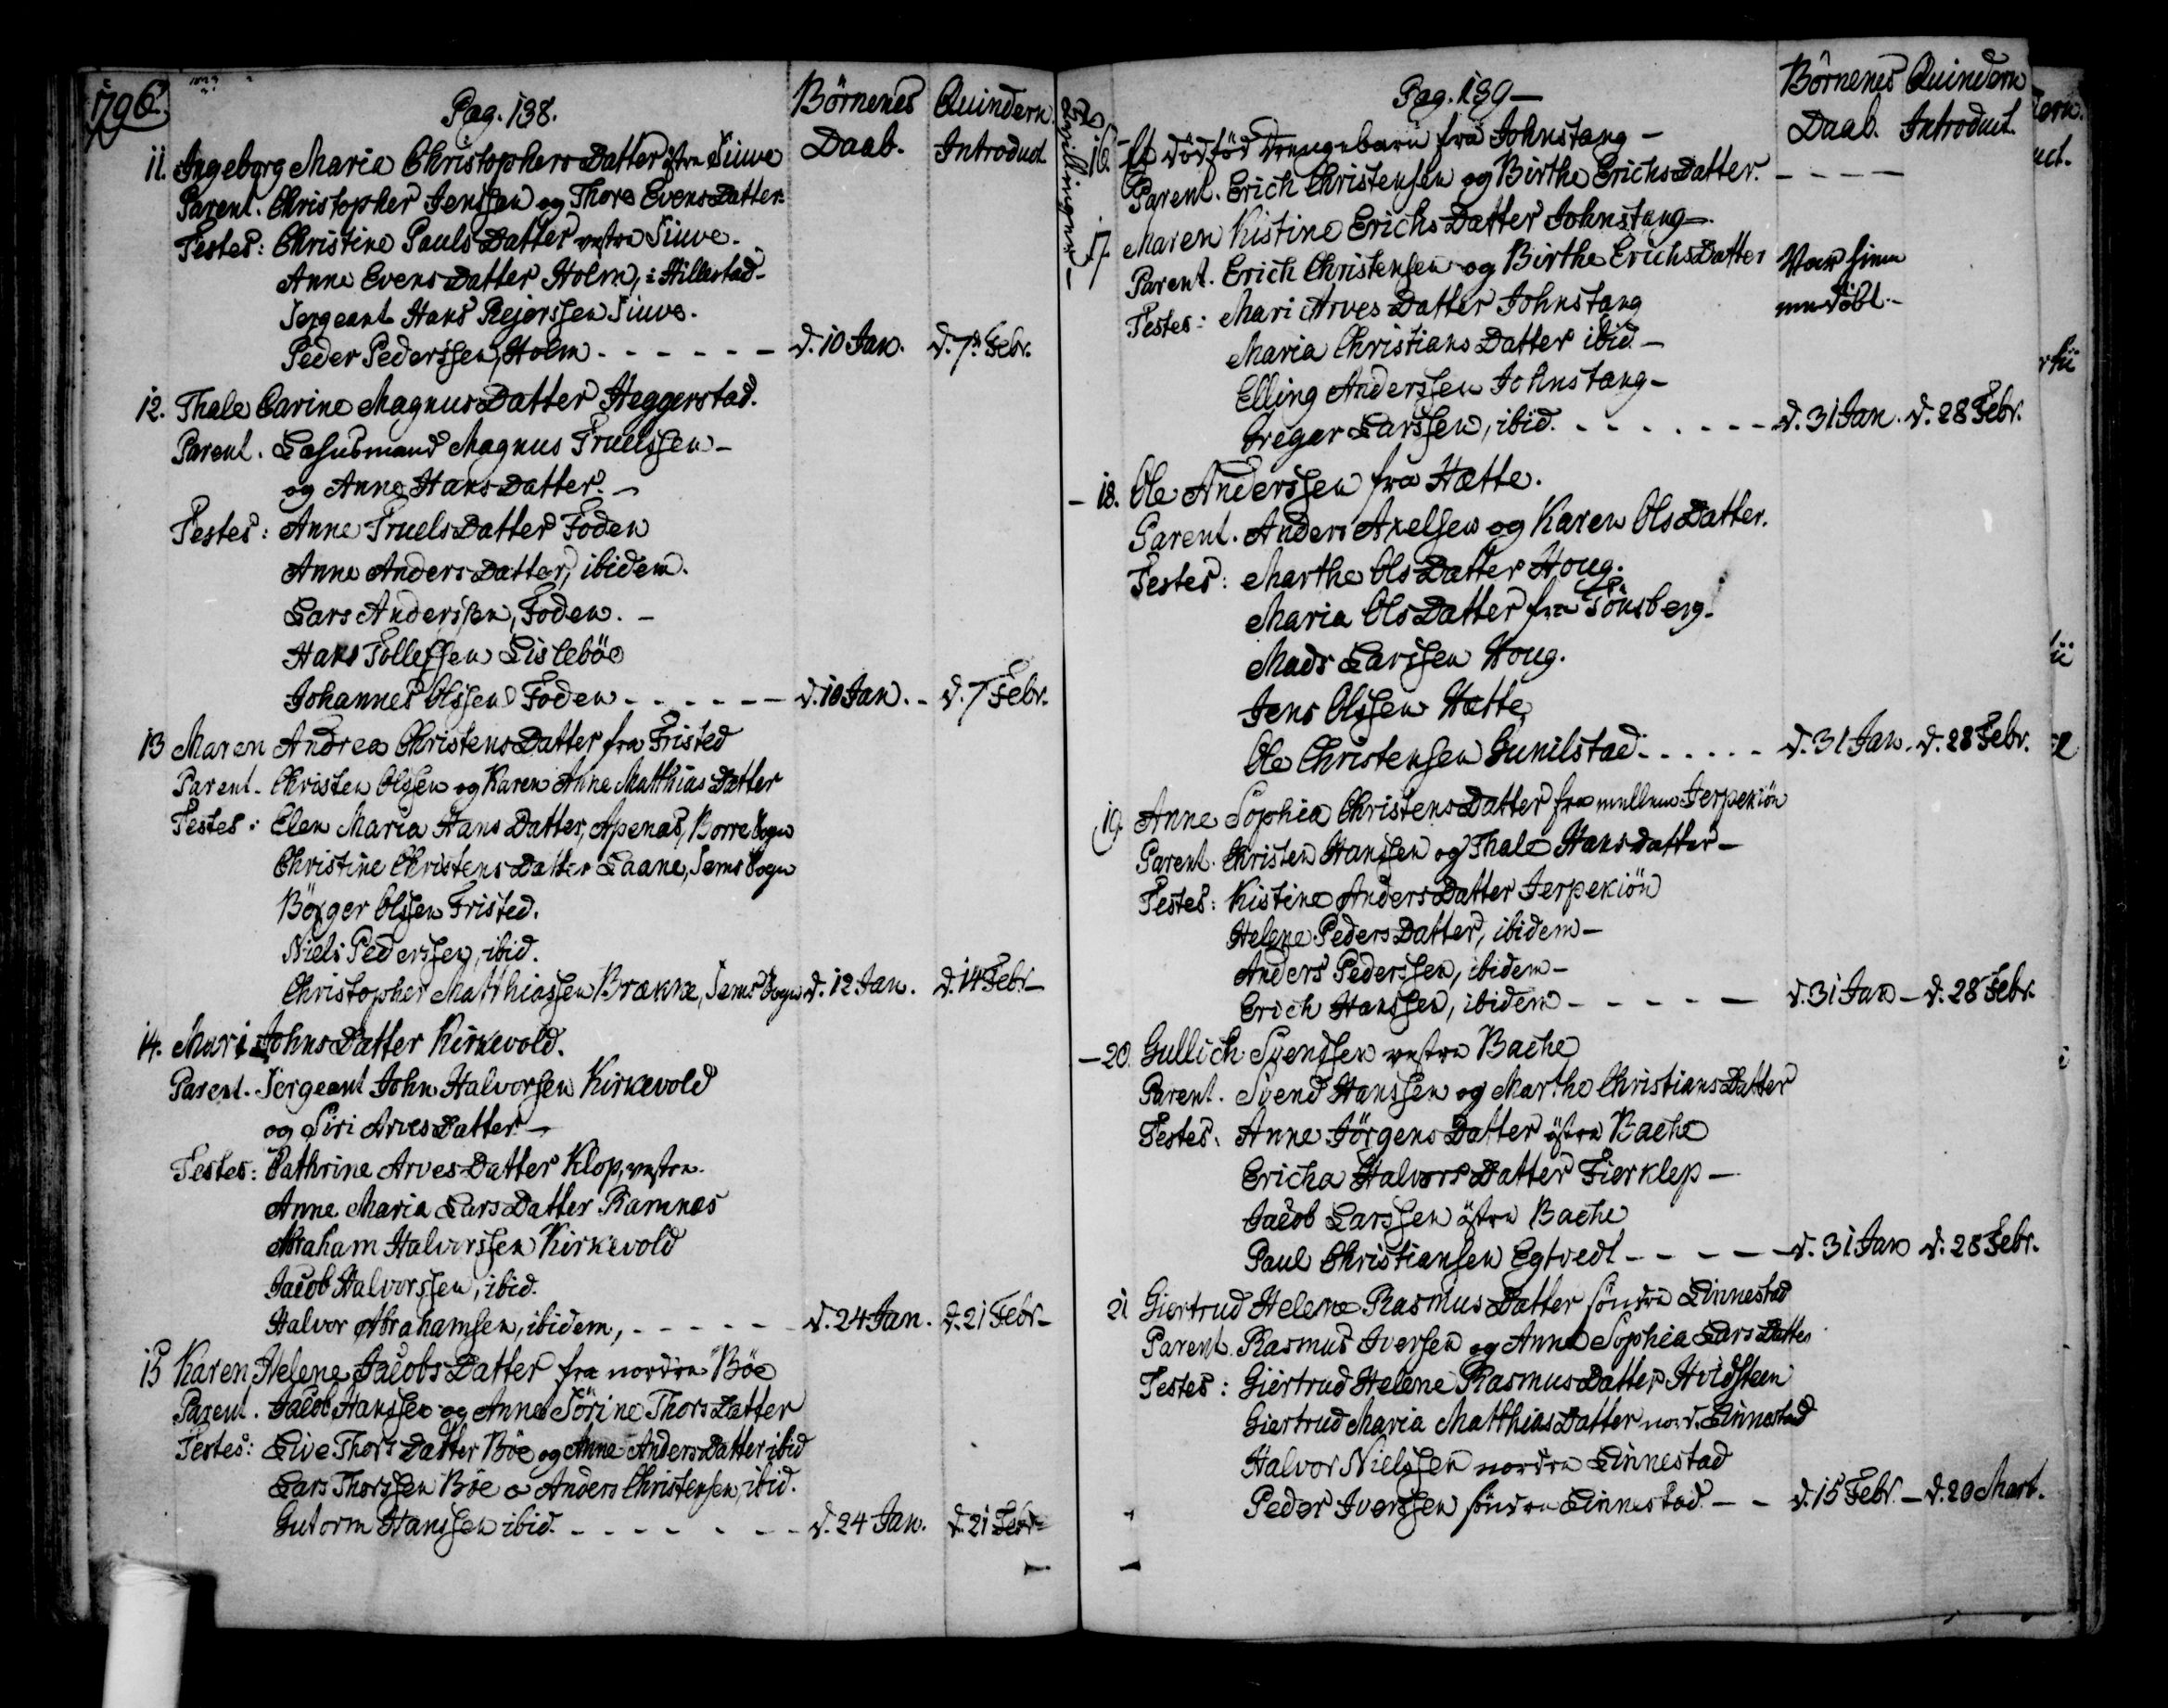 1796.
Pag. 138.
Börnenes Daab.
Quindern. Introduct.
11. Ingeborg Maria Christophers Datter östre Siuve
Parent. Christopher Jenssen og Thore Evens Datter.
Testes: Christine Pauls Datter vestre Siuve.
Anne Evens Datter Holm, i Hillestad-
Sergeant Hans Rejerssen Siuve.
Peder Pederssen, Holm - - - - - - d. 10 Jan. d. 7de Febr.
12. Thale Carine Magnus Datter Heggerstad.
Parent. Magnus Truelssen -
og Anne Hans Datter. -
Testes: Anne Truels Datter Foden
Anne Anders Datter, ibidem.
Lars Anderssen, Foden. -
Hans Tollefssen Lisleböe
Johannes Olssen Foden - - - - - - d. 10 Jan. - d. 7 Febr.
13 Maren Andrea Christens Datter fra Fristed
Parent. Christen Olssen og Karen Anne Matthias Datter
Testes: Elen Maria Hans Datter, Apenæs, Borre Sogn
Christine Christens Datter Laane, Sems Sogn
Börger Olssen Fristed.
Niels Pederssen, ibid.
Christopher Matthiassen Brække, Sems Sogn d. 12 Jan. d. 14 Febr. -
14. Mari Johns Datter Kirkevold.
Parent. Sergeant John Halvorsen Kirkevold
og Siri Arves Datter -
Testes: Cathrine Arves Datter Klop, vestre.
Anne Maria Lars Datter Ramnæs
Abraham Halvorssen Kirkevold
Jacob Halvorssen, ibid.
Halvor Abrahamsen, ibidem, - - - - - d. 24 Jan. d. 21 Febr. -
15 Karen Helene Jacobs Datter fra nordre Böe
Parent. Jacob Hanssen og Anne Sörine Thors Datter
Testes: Live Thors Datter Böe og Anne Anders Datter ibid
Lars Thorssen Böe o Anders Christensen, ibid.
Gutorm Hanssen ibid. - - - - - - - d. 24 Jan. d. 21 Febr -
Pag. 139 -
Börnenes Daab.
Quindern Introduct.
Tvillinger -
16. Et dödföd Drengebarn fra Johnstang -
Parent. Erich Christensen og Birthe Erichs Datter. - - - -
17. Maren Kistine Erichs Datter Johnstang -
Parent. Erich Christensen og Birthe Erichs Datter Var hiem
Testes: Mari Arves Datter Johnstang medöbt -
Maria Christians Datter ibid -
Elling Anderssen Johnstang -
Gregar Larssen, ibid. - - - - - - - d. 31 Jan. d. 28 Febr.
- 18. Ole Anderssen fra Hætte.
Parent. Anders Axelsen og Karen Ols Datter.
Testes: Marthe Ols Datter Houg.
Maria Ols Datter fra Tönsberg.
Mads Larssen Houg.
Jens Olssen Hætte
Ole Christensen Gunilstad - - - - - - d. 31 Jan. d. 28 Febr.
19. Anne Sophia Christens Datter fra mellem Jerpekiön
Parent. Christen Hanssen og Thale Hans Datter -
Testes: Kistine Anders Datter Jerpekiön
Helene Peders Datter, ibidem -
Anders Pederssen, ibidem -
Erich Hanssen, ibidem - - - - - d. 31 Jan - d. 28 Febr.
- 20. Gullich Svendsen vestre Bache
Parent. Svend Hanssen og Marthe Christians Datter
Testes. Anne Jörgens Datter östre Bache
Ericha Halvors Datter Fierklep -
Jacob Larssen östre Bache
Paul Christiansen Egtvedt - - - - - d. 31 Jan d. 28 Febr.
21 Giertrud Helene Rasmus Datter söndre Linnestad
Parent. Rasmus Iversen og Anne Sophia Lars Datter
Testes: Giertrud Helene Rasmus Datter Hvidsteen
Giertrud Maria Matthias Datter nord. Linnestad
Halvor Nielssen nordre Linnestad
Peder Iverssen söndre Linnestad - - d. 15 Febr. - d. 20 Mart.